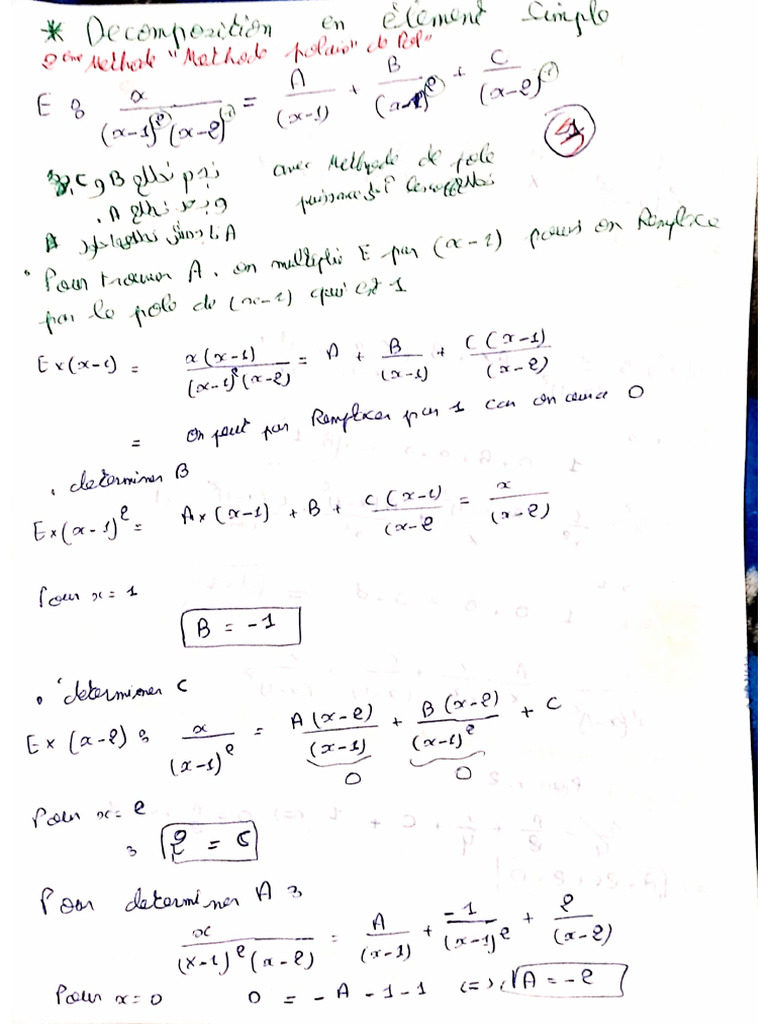 * Decomposition en élement Simple
2ème Methode "Methode polaire" de Pol"
E : x / ((x-1)^2 (x-2)^(1)) = A / (x-1) + B / (x-1)^2 + C / (x-2)^(1)
1
نجم نطلع B و C avec Methode de pole
A. نطلع puissance
A ما
• Pour trouver A, on multiplie E par (x-1) pour on Remplace
par le pole de (x-1) qui est 1
E×(x-1) = x(x-1) / ((x-1)^2 (x-2)) = A + B / (x-1) + C(x-1) / (x-2)
= on peut pas Remplacer par 1 car on aura 0
• determiner B
E×(x-1)^2 = A×(x-1) + B + C(x-1) / (x-2 = x / (x-2)
Pour x=1
B = -1
• determiner C
E×(x-2) : x / (x-1)^2 = A(x-2) / (x-1) + B(x-2) / (x-1)^2 + C
0 0
Pour x=2
: 2 = C
Pour determiner A :
x / ((x-1)^2 (x-2)) = A / (x-1) + -1 / (x-1)^2 + 2 / (x-2)
Pour x=0 0 = -A -1-1 (=) A = -2